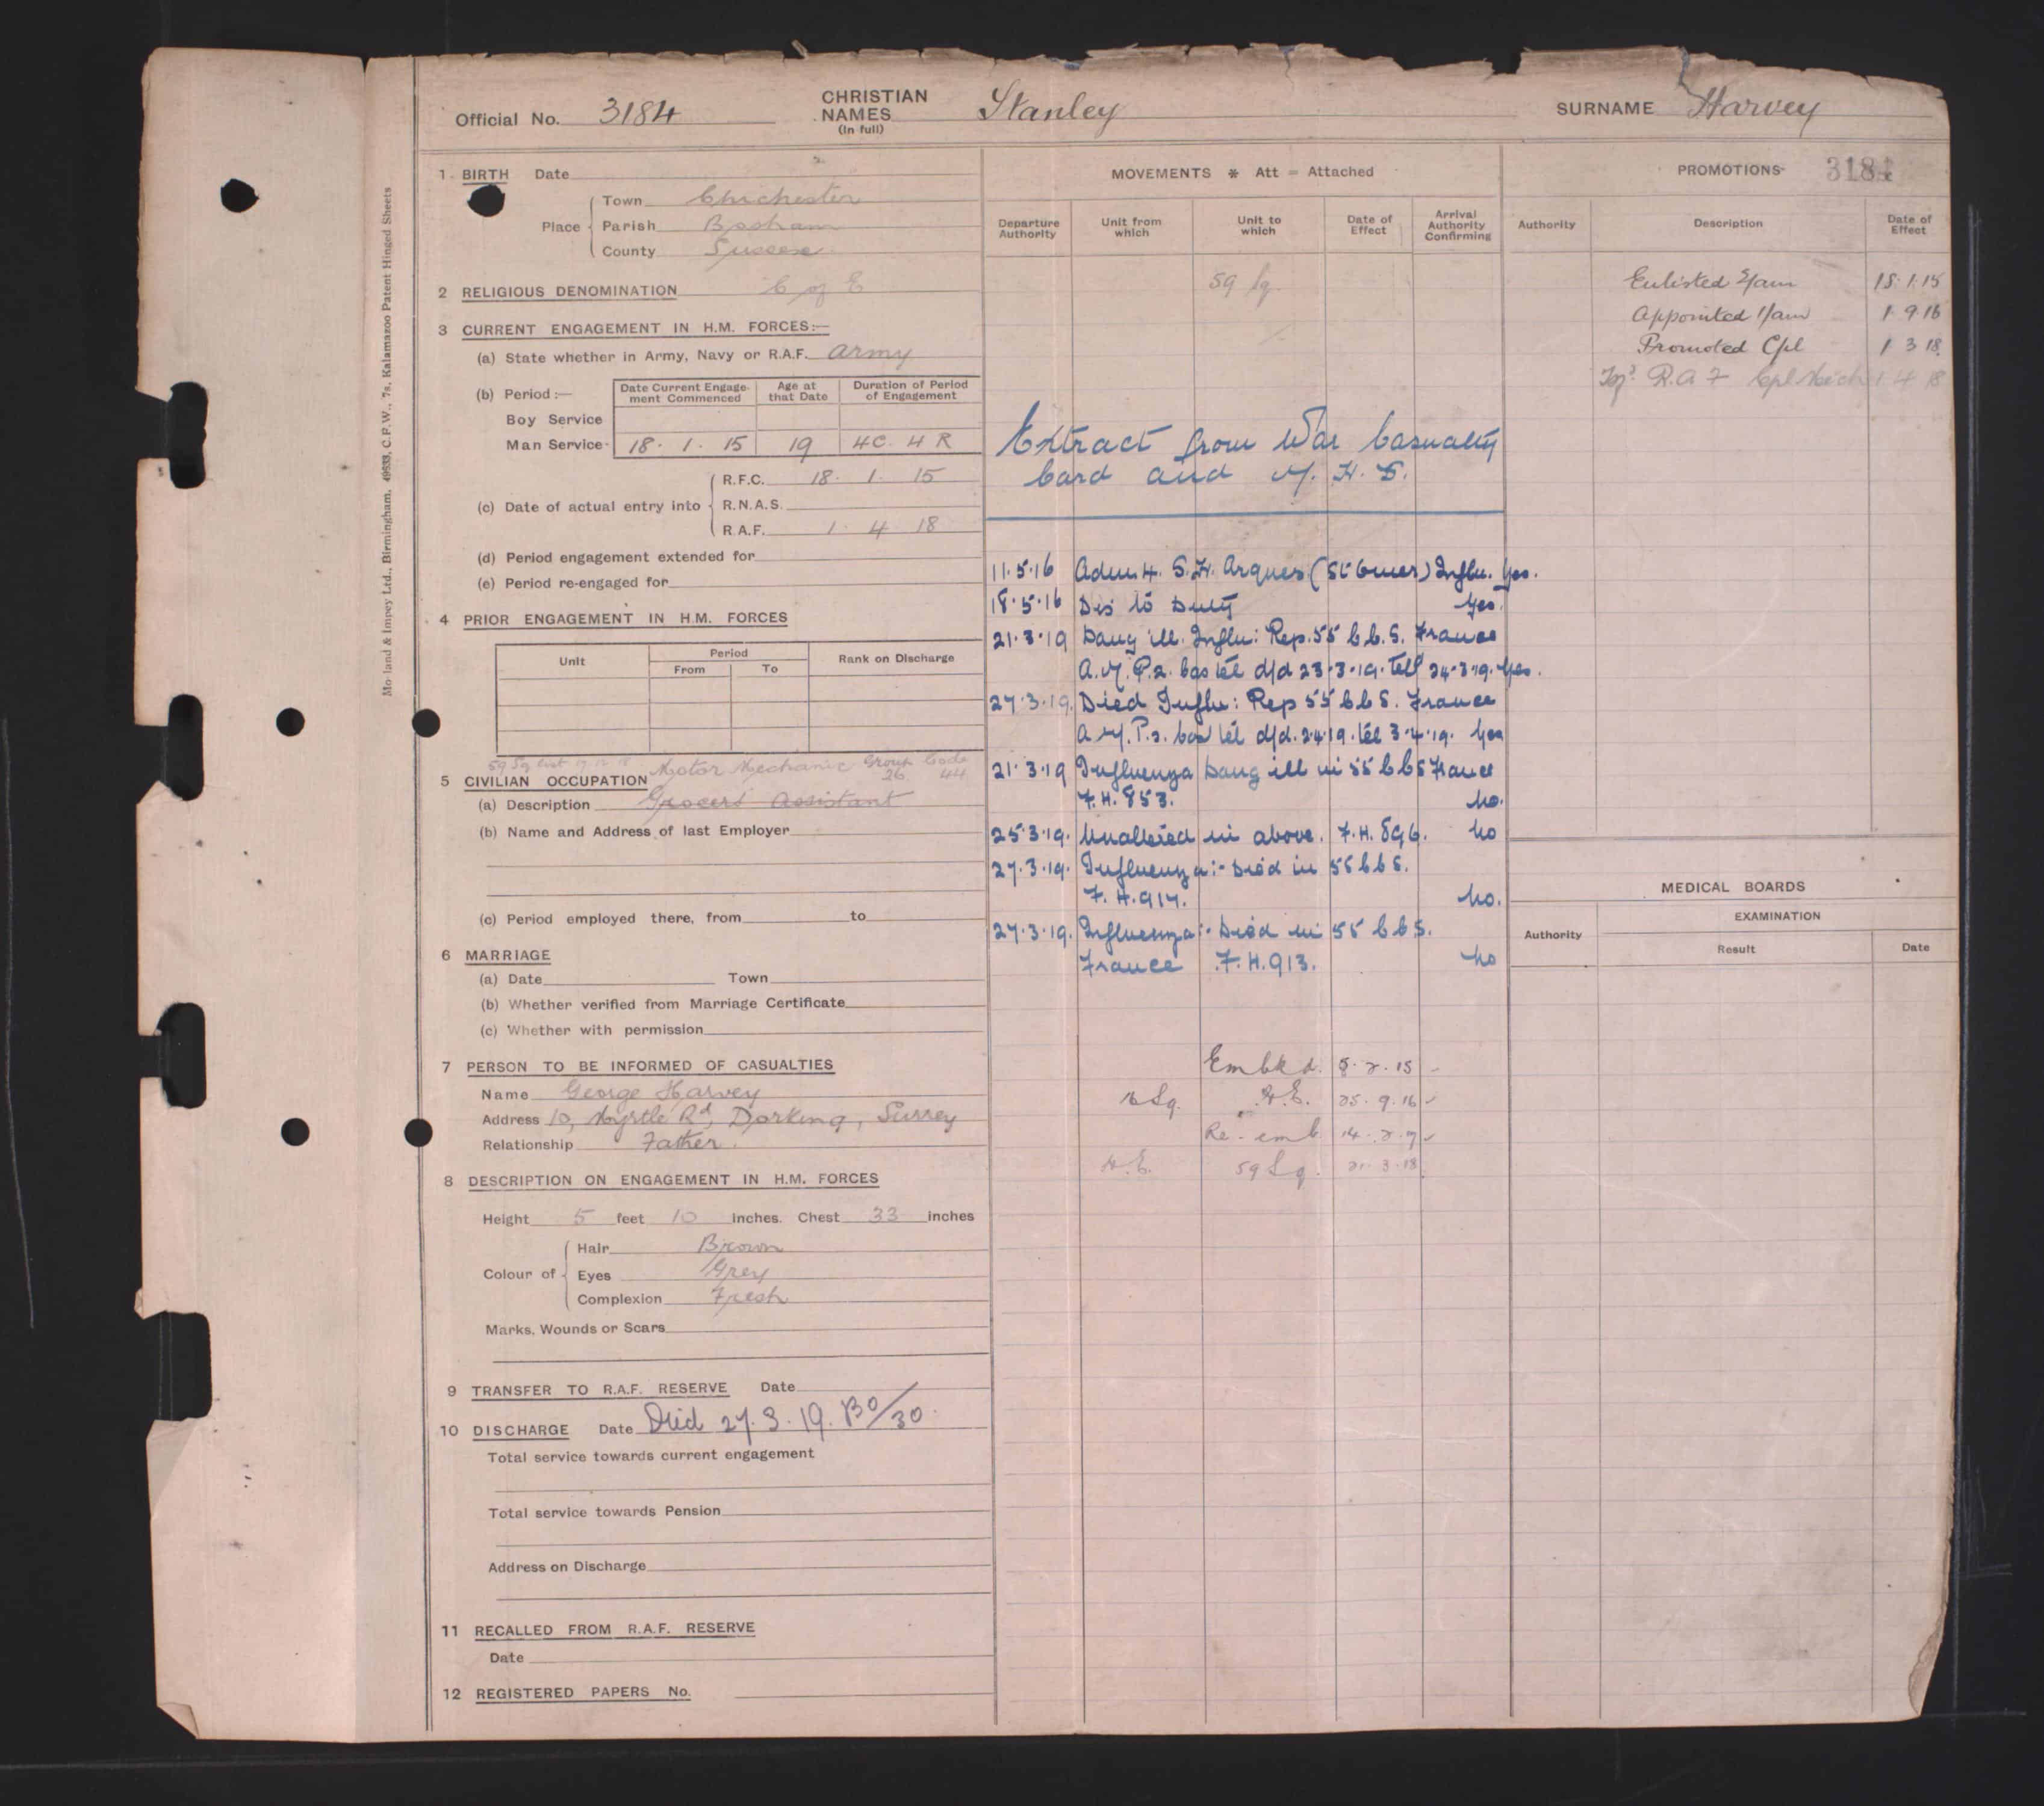 Official No. 3184 CHRISTIAN NAMES (In full) Stanley SURNAME Harvey
1 BIRTH Date
Place Town Chichester
Parish Bosham
County Sussex
2 RELIGIOUS DENOMINATION C of E
3 CURRENT ENGAGEMENT IN H.M. FORCES:—
(a) State whether in Army, Navy or R.A.F. Army
(b) Period:— Date Current Engagement Commenced Age at that Date Duration of Period of Engagement
Boy Service
Man Service 18 . 1 . 15 19 4C. 4R
(c) Date of actual entry into R.F.C. 18 . 1 . 15
R.N.A.S.
R.A.F. 1 4 18
(d) Period engagement extended for
(e) Period re-engaged for
4 PRIOR ENGAGEMENT IN H.M. FORCES
Unit Period Rank on Discharge
From To
59 Sq list 19 12 18 Motor Mechanic Group 26 Code 44
5 CIVILIAN OCCUPATION
(a) Description Grocers Assistant
(b) Name and Address of last Employer
(c) Period employed there, from to
6 MARRIAGE
(a) Date Town
(b) Whether verified from Marriage Certificate
(c) Whether with permission
7 PERSON TO BE INFORMED OF CASUALTIES
Name George Harvey
Address 10, Myrtle Rd, Dorking, Surrey
Relationship Father.
8 DESCRIPTION ON ENGAGEMENT IN H.M. FORCES
Height 5 feet 10 inches. Chest 33 inches
Colour of Hair Brown
Eyes Grey
Complexion Fresh
Marks, Wounds or Scars
9 TRANSFER TO R.A.F. RESERVE Date
10 DISCHARGE Date Died 27.3.19. BO/30.
Total service towards current engagement
Total service towards Pension
Address on Discharge
11 RECALLED FROM R.A.F. RESERVE
Date
12 REGISTERED PAPERS No.
MOVEMENTS * Att = Attached
Departure Authority Unit from which Unit to which Date of Effect Arrival Authority Confirming
59 Sq.
Extract from War Casualty
Card and M.H.S.
11.5.16 Adm. H. S.H. Arques (St Omer) Influ. Yes.
18.5.16 Dis to Duty Yes.
21.3.19 Dang ill. Influ: Rep. 55 C.C.S. France
A.M. P.2. Cas tel d/d 23.3.19. tel 24.3.19. Yes.
27.3.19. Died Influ: Rep 55 C C S. France
A.M. P.2. Cas tel d/d. 2.4.19. tel 3.4.19. Yes
21.3.19 Influenza Dang ill in 55 C C S France
F.H. 853. No.
25.3.19. Unaltered in above. F.H. 896. No
27.3.19. Influenza:- Died in 55 C C S.
F.H. 917. No.
27.3.19. Influenza:- Died in 55 C C S.
France F.H. 913. No
Embkd. 8.2.15
Sq. H.E. 25.9.16
Re-emb 14.2.17
H.E. 59 Sq. 21.3.18
PROMOTIONS 3184
Authority Description Date of Effect
Enlisted 2/am 18.1.15
Appointed 1/am 1 9 16
Promoted Cpl 1 3 18.
Tfd R.A.F Cpl Mech 1 4 18
MEDICAL BOARDS
Authority EXAMINATION
Result Date
Moreland & Impey Ltd., Birmingham. 49533, C.F.W., 7s, Kalamazoo Patent Hinged Sheets